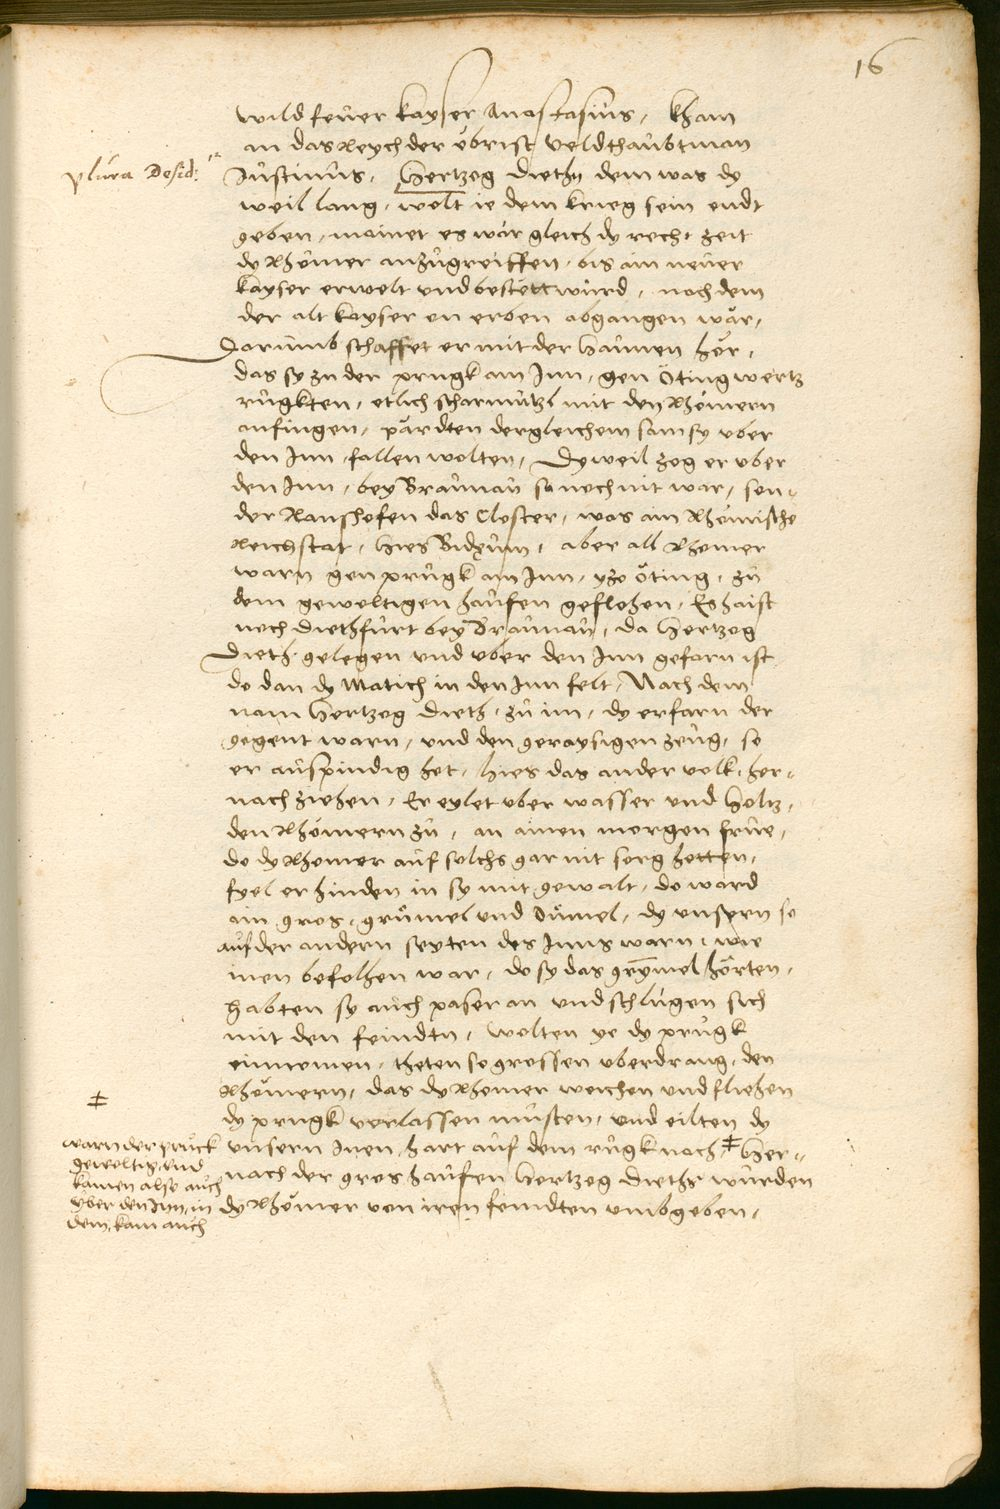 16
wild feuer kayser Anastasius, kham
an das Reych der öbrist veldthaubtman
plura Desid:
Justinus, Hertzog Dieth, dem was dy
weil lang, wolt ie dem krieg sein endt
geben, mainet es wär gleich dy recht zeit
dy Rhömer anzugreiffen, bis ain neuer
kayser erwelt und bestett würd, noch dem
der alt kayser on erben abgangen wär,
Darumb schaffet er mit der Haunen hör,
das sy zu der prugk am Inn, gen Öting wertz
rugkten, etlich scharmutzl mit den Rhömern
anfingen, pärdten dergleichem sam sy uber
den Inn fallen wolten, Dyweil zog er uber
den Inn, bey Braunau so noch nit war, son-
der Ranshofen das Closter, was ain Rhömische
Reichstat, hies Bidxum, aber all Rhomer
warn gen prugk am Inn, yzo Öting, zu
dem geweltigen haufen geflohen, Es haist
noch Diethfurt bey Braunau, da Hertzog
Dieth gelegen und uber den Inn gefarn ist
do dan dy Matich in den Inn felt, Nach dem
nam Hertzog Dieth zu im, dy erfarn der
gegent warn, und den geraysigen zeug, so
er auspindig het, hies das ander volk her-
nach ziehen, Er eylet uber wasser und holtz,
den Rhömern zu, an ainen morgen frue,
do dy Rhomer auf solchs gar nit sorg hetten,
fyel er hinden in sy mit gewalt, do ward
ain gros grümel und Dümel, dy unsern so
auf der andern seyten des Inns warn, wie
inen befolhen war, do sy das grymel hörten,
habten sy auch paser an und schlugen sich
mit den feindtn, wolten ye dy prugk
einnemen, theten so grossen uberdrang, den
Rhömern, das dy Rhomer weichen und fliehen
dy prugk verlassen musten, und eilten dy
unsern Inen hart auf dem rugk nach, ‡ Her-
nach der gros haufen Hertzog Dieths wurden
dy Rhömer von iren feindten umbgeben,
‡
warn der pruck
geweltig, und
kamen also auch
yber den Inn, in
dem, kam auch